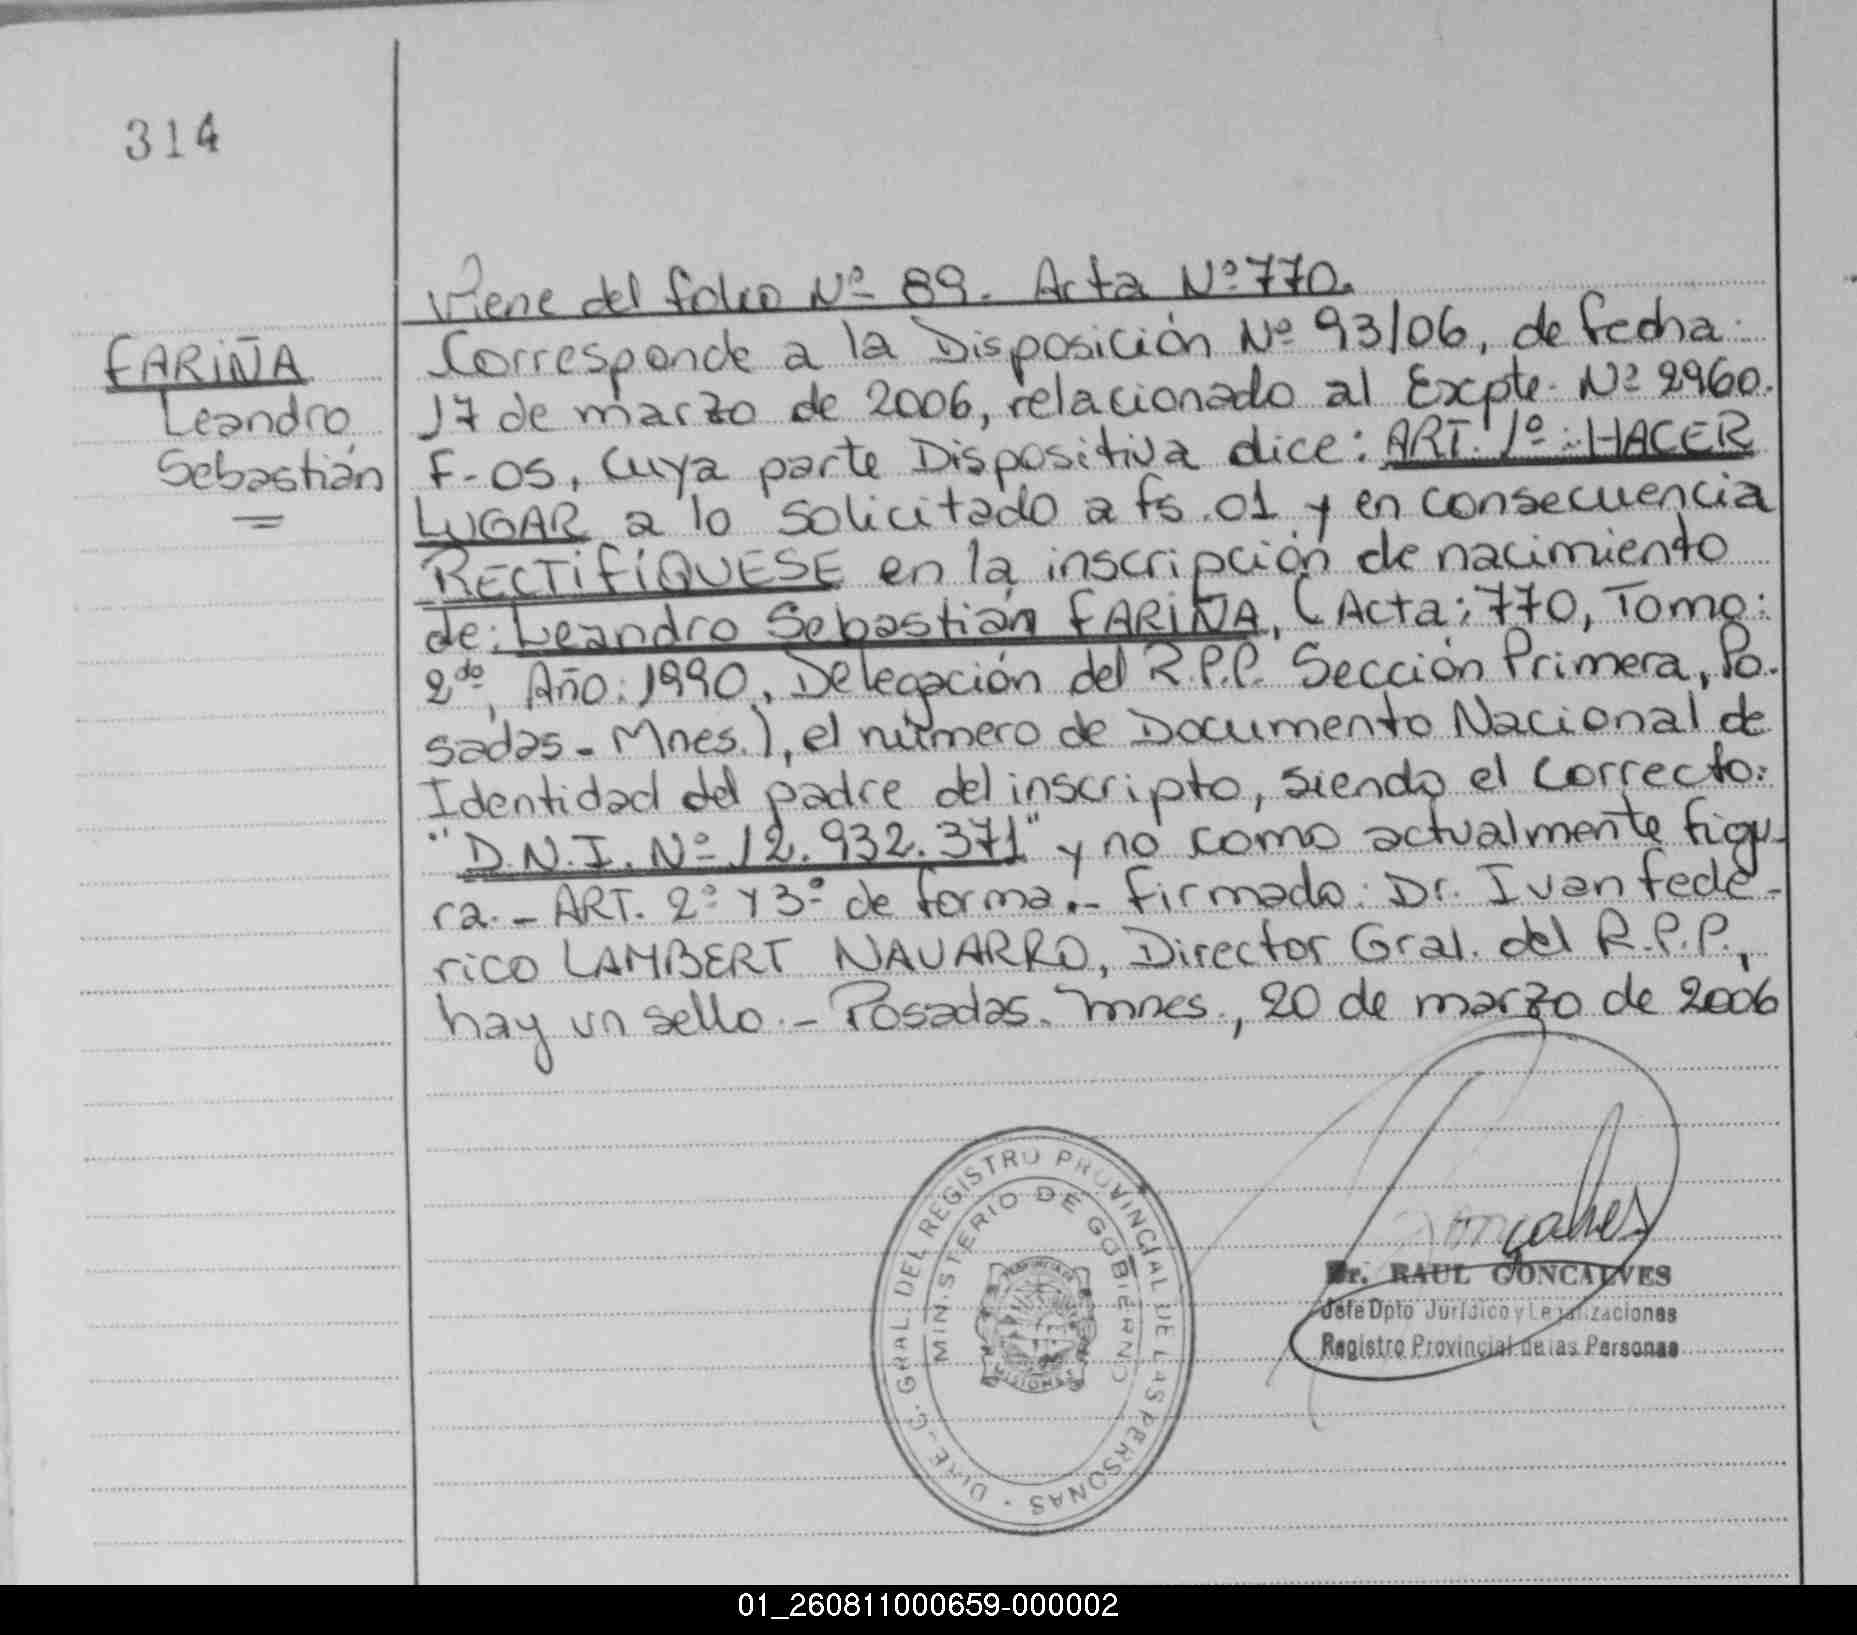 314
FARIÑA
Leandro
Sebastián
Viene del folio Nº 89. Acta Nº 770.
Corresponde a la Disposición Nº 93/06, de fecha:
17 de marzo de 2006, relacionado al Expte. Nº 2960.
F-05, Cuya parte Dispositiva dice: ART. 1º: HACER
LUGAR a lo solicitado a fs. 01 y en consecuencia
RECTIFÍQUESE en la inscripción de nacimiento
de: Leandro Sebastián FARIÑA, (Acta: 770, Tomo:
2do, Año: 1990, Delegación del R.P.P. Sección Primera, Po-
sadas - Mnes.), el número de Documento Nacional de
Identidad del padre del inscripto, siendo el correcto:
"D.N.I. Nº 12.932.371" y no como actualmente figu-
ra. - ART. 2º y 3º de forma. - Firmado: Dr. Ivan Fede-
rico LAMBERT NAVARRO, Director Gral. del R.P.P.,
hay un sello. - Posadas. Mnes., 20 de marzo de 2006
DIREC. GRAL. DEL REGISTRO PROVINCIAL DE LAS PERSONAS
MINISTERIO DE GOBIERNO
MISIONES
Gonçalves
Dr. RAUL GONCALVES
Jefe Dpto Jurídico y Legalizaciones
Registro Provincial de las Personas
01_260811000659-000002